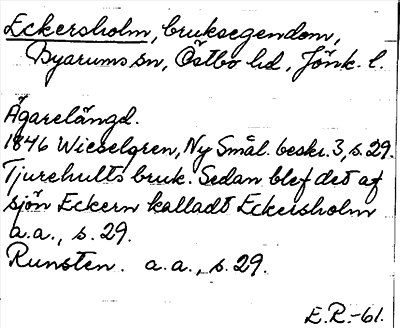 Eckersholm, bruksegendom,
Byarums sn, Östbo hd, Jönk. l.
Ägarelängd.
1846 Wieselgren, Ny Smål. beskr. 3, s. 29.
Tjurehults bruk. Sedan blef det af
sjön Eckern kalladt Eckersholm
a.a., s. 29.
Runsten. a.a., s. 29.
E.R.-61.